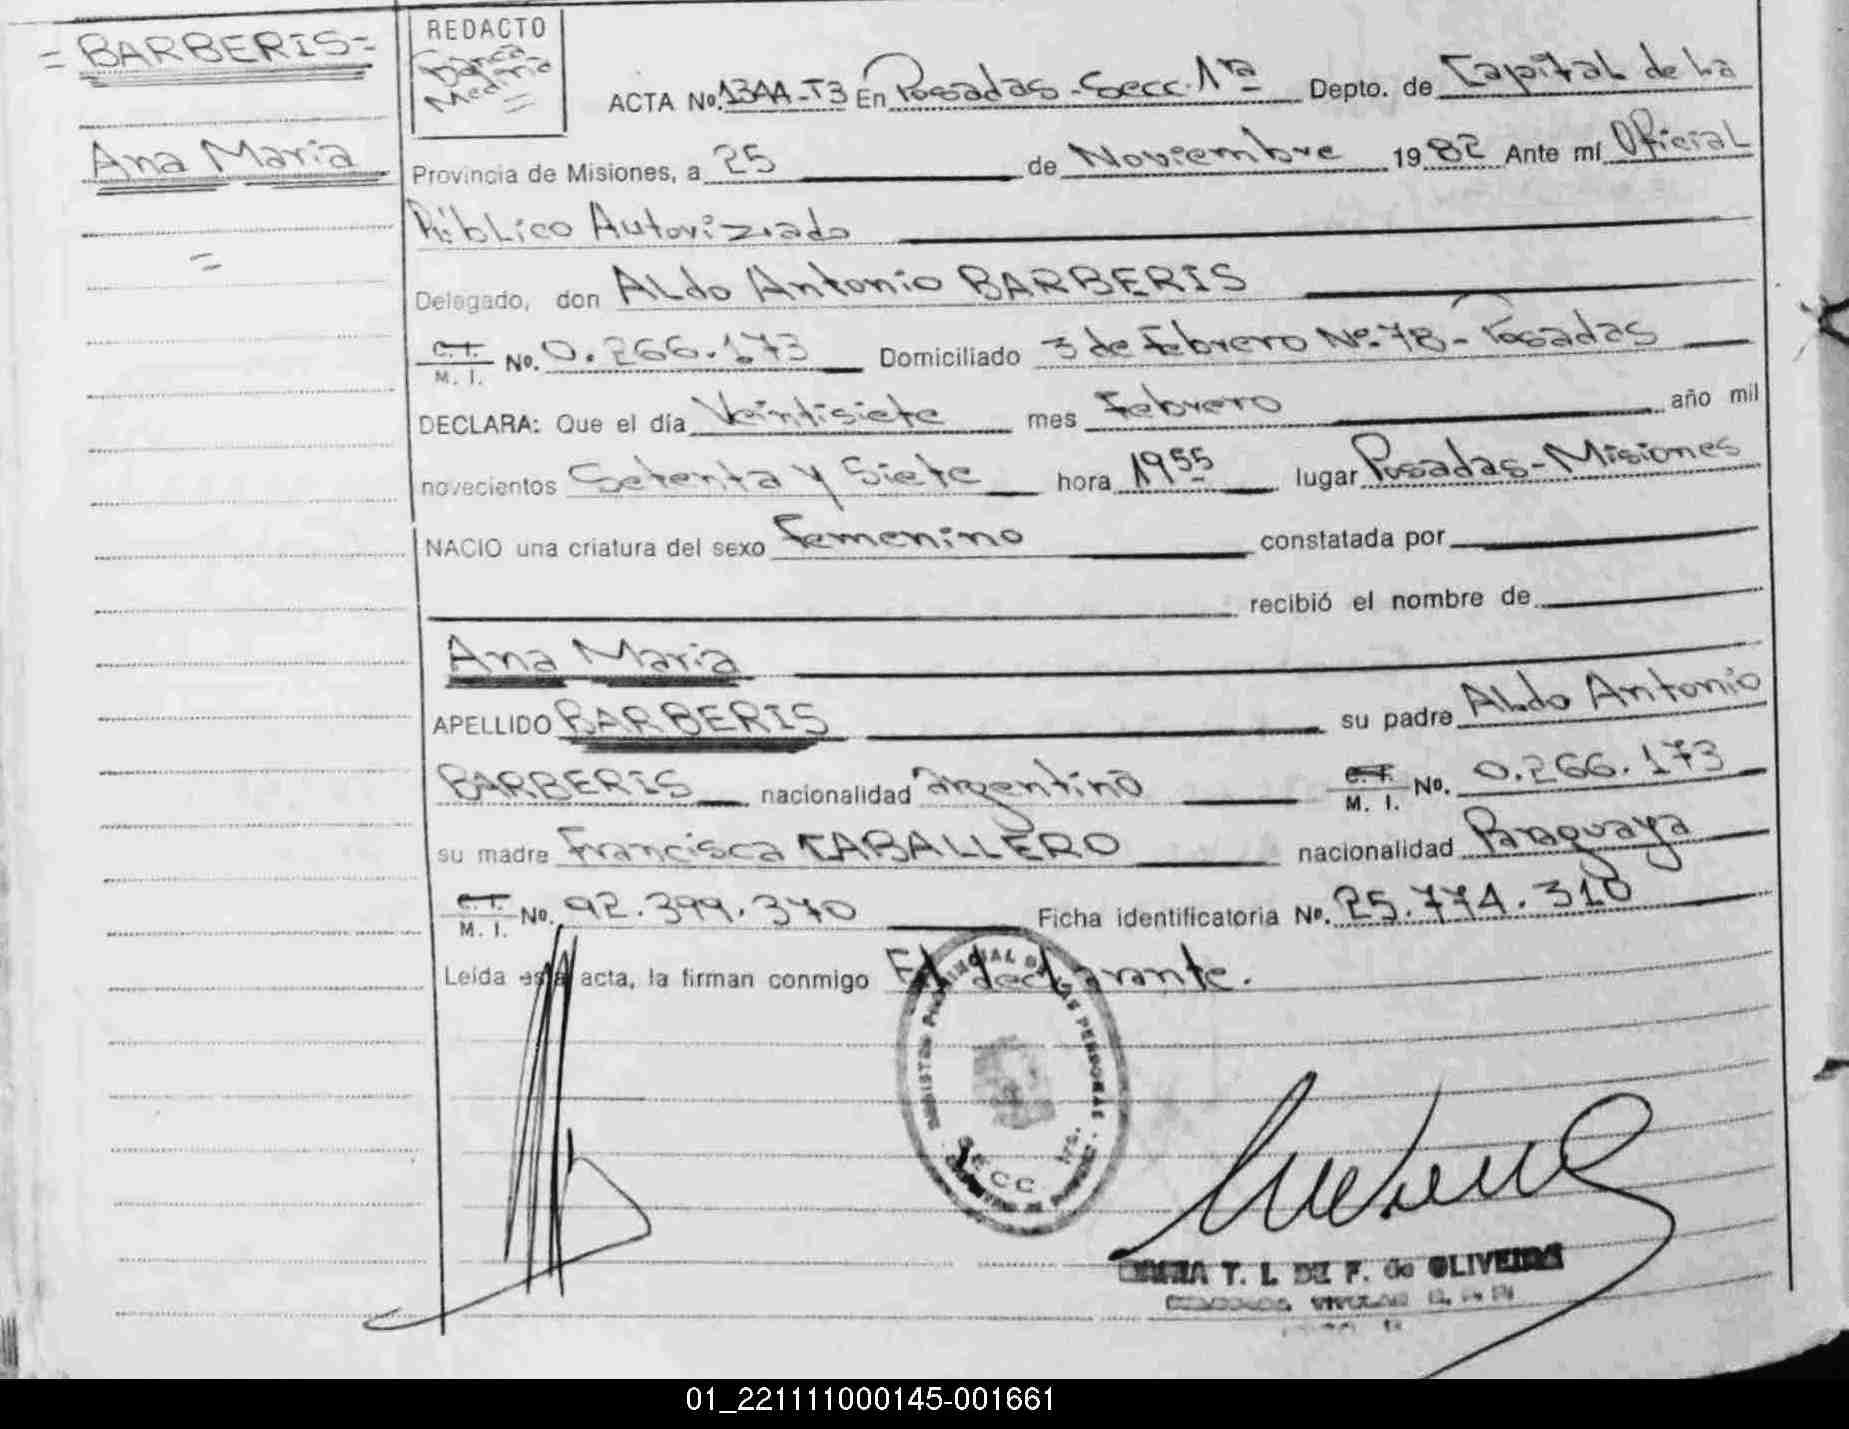 =BARBERIS=
Ana Maria
=
REDACTO
Medina
=
ACTA No. 1344-T3 En Posadas-Secc. 1ra Depto. de Capital de La
Provincia de Misiones, a 25 de Noviembre 1982 Ante mí Oficial
Público Autorizado
Delegado, don ALdo Antonio BARBERIS
C.I. M. I. No. 0.266.173 Domiciliado 3 de Febrero Nº 78-Posadas
DECLARA: Que el día Veintisiete mes Febrero año mil
novecientos Setenta y Siete hora 1955 lugar Posadas-Misiones
NACIO una criatura del sexo Femenino constatada por
recibió el nombre de
Ana Maria
APELLIDO BARBERIS su padre ALdo Antonio
BARBERIS nacionalidad argentino C.I. M. I. No. 0.266.173
su madre Francisca CABALLERO nacionalidad Paraguaya
C.I. M. I. No. 92.399.370 Ficha identificatoria No. 25.774.310
Leída esta acta, la firman conmigo El declarante.
PROVINCIAL DE LAS PERSONAS
SECC 1ra.
T. L. DE F. de OLIVEIRA
01_221111000145-001661